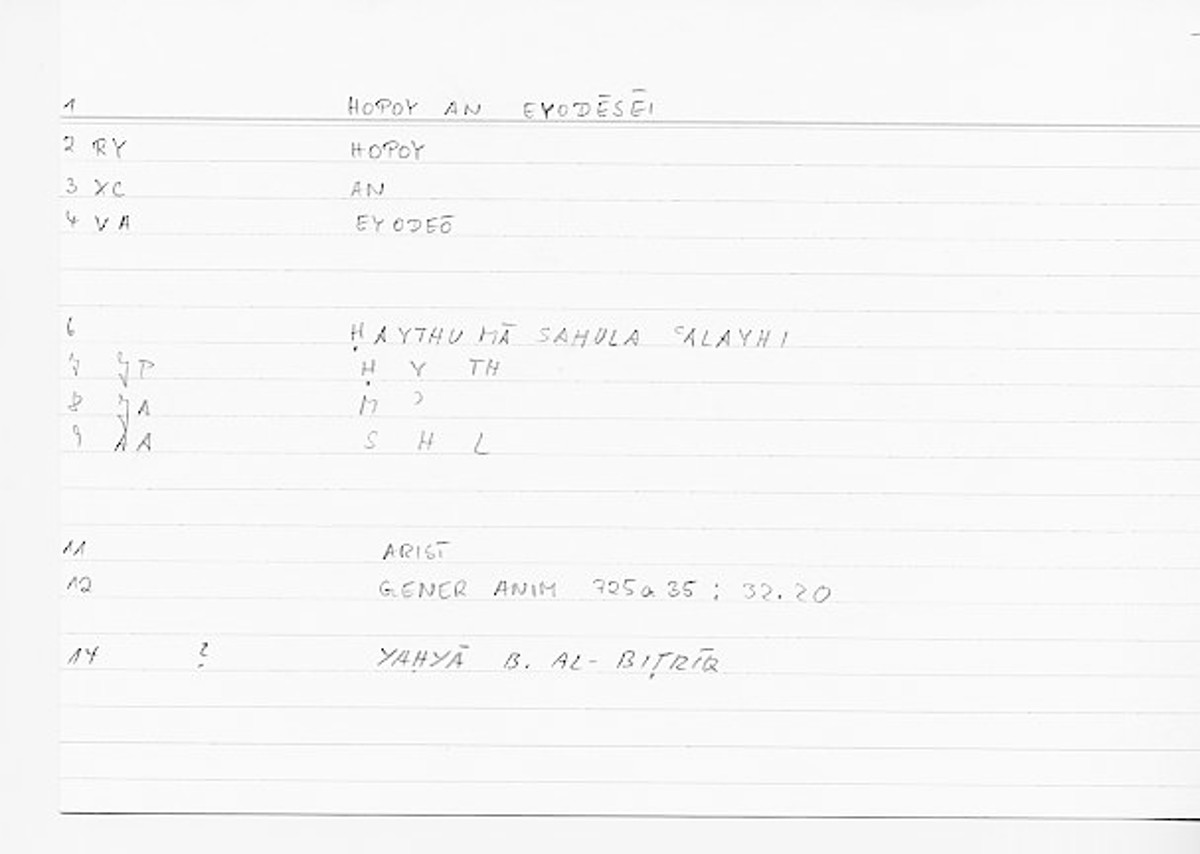 1 HOPOY AN EYODĒSĒI
2 RY HOPOY
3 XC AN
4 VA EYODEŌ
6 ḤAYTHU MĀ SAHULA ʿALAYHI
7 P Ḥ Y TH
8 A M ʾ
9 A S H L
11 ARIST
12 GENER ANIM 725a 35 ; 32.20
14 ? YAḤYĀ B. AL-BIṬRĪQ